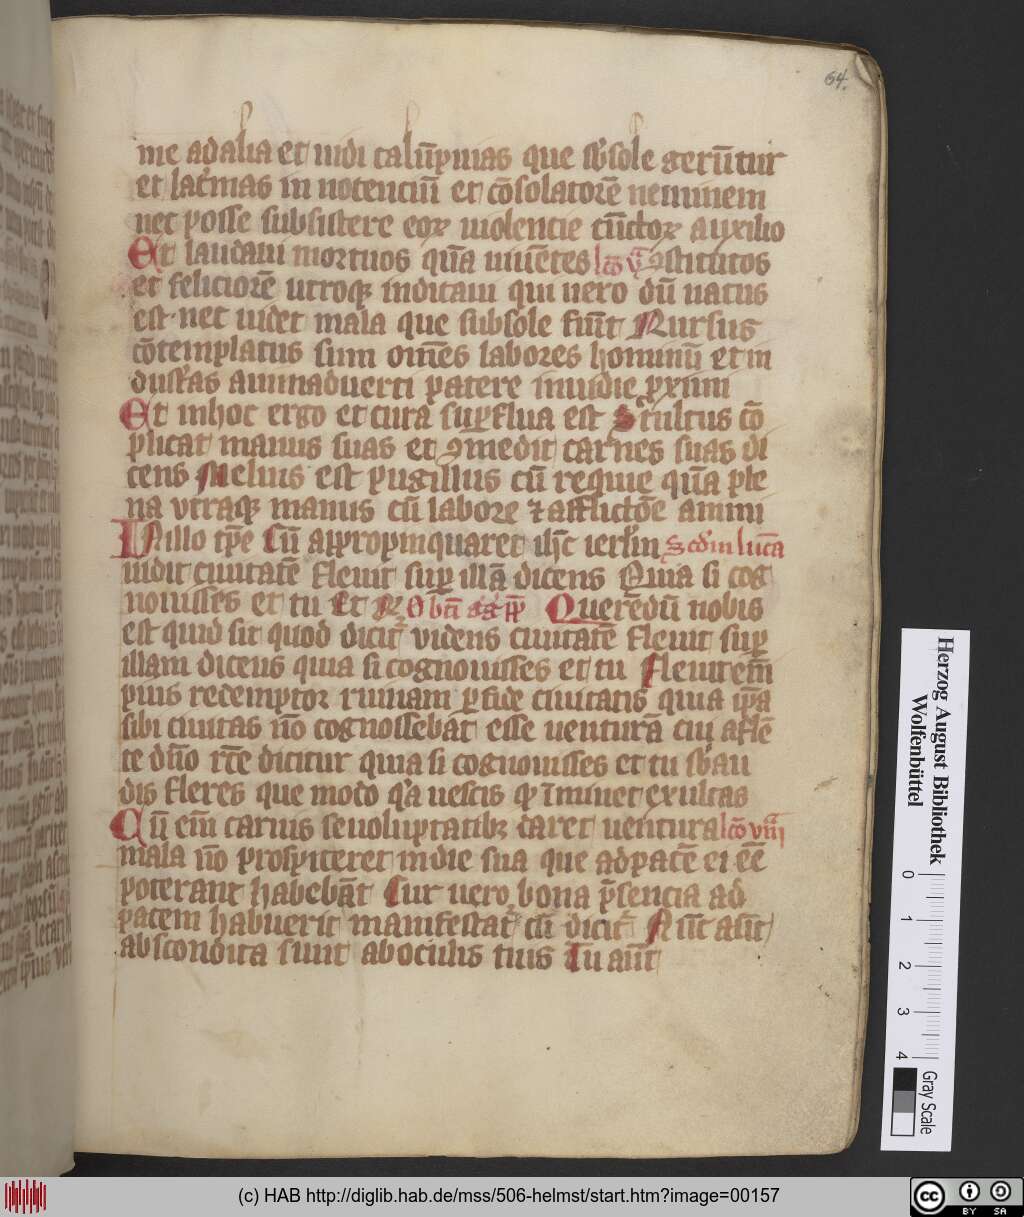 64.
me ad alia et uidi calūpnias que sb sole gerūtur
et lac'mas innocenciū et cōsolatorē neminem
nec posse subsistere eoꝝ uiolencie cūctoꝝ auxilio
Et laudaui mortuos qūa uiuētes lcō v ꝯstitutos
et feliciorē utroqꝫ iudicaui qui uero dū natus
est nec uidet mala que sub sole fiūt Rursus
cōtemplatus sum om̄es labores hominū et in
dust'as animaduerti patere inuidie ꝓximi
Et in hoc ergo et cura sup͛flua est Stultus cō
plicat manus suas et ꝯmedit carnes suas di
cens Melius est pugillus cū requie qūa ple
na utraqꝫ manus cū labore ⁊ afflictōe animi
In illo tp̄e Cū appropinquaret ih̄c ierlm̄ Scd'm lucā
uidit ciuitatē fleuit sup͛ illā dicens Quia si cog
nouisses et tu Et rꝫ O bt̄i gͣgͦ pp̄ Querēdū nobis
est quid sit quod dicit' videns ciuitatē fleuit sup͛
illam dicens quia si cognouisses et tu Fleuit em̄
pius redemptor ruinam ꝑfide ciuitatis quia ip̄a
sibi ciuitas nō cognoscebat esse uenturā cui aflē
te dn̄o rc̄e dicitur quia si cognouisses et tu sbau
dis fleres que modo qͣa nescis qͩ īminet exultas
Cū em̄ carnis se uoluptatibꝫ daret uentura lcō viii
mala nō prospiceret in die sua que ad pacē ei eē
poterant habebāt Cur uero bona p̄sencia ad
pacem habuerit manifestat' cū dicit' Nūc aūt
abscondita sunt ab oculis tuis Tu aūt
Herzog August Bibliothek
Wolfenbüttel
0 1 2 3 4
Gray Scale
(c) HAB http://diglib.hab.de/mss/506-helmst/start.htm?image=00157
cc BY SA